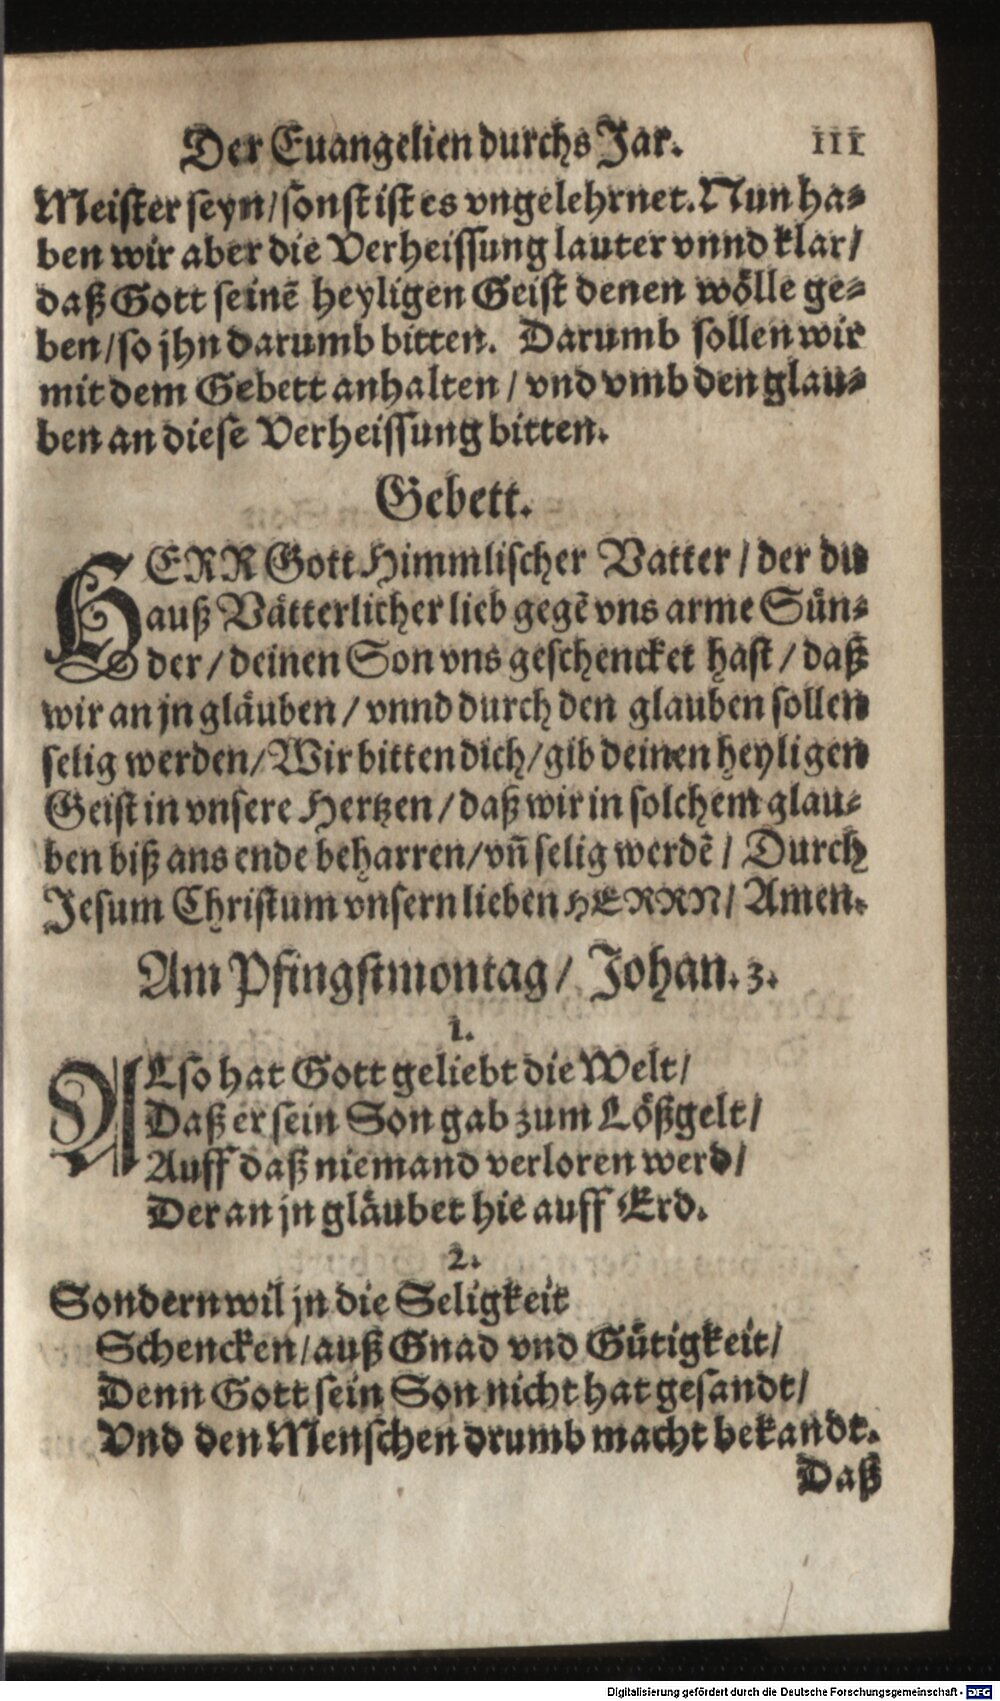 Der Euangelien durchs Jar. 111
Meister seyn/ sonst ist es vngelehrnet. Nun ha-
ben wir aber die Verheissung lauter vnnd klar/
daß Gott seinē heyligen Geist denen wölle ge-
ben/ so jhn darumb bitten. Darumb sollen wir
mit dem Gebett anhalten / vnd vmb den glau-
ben an diese Verheissung bitten.
Gebett.
HERR Gott Himmlischer Vatter / der du
auß Vätterlicher lieb gegē vns arme Sün-
der / deinen Son vns geschencket hast / daß
wir an jn gläuben / vnnd durch den glauben sollen
selig werden/ Wir bitten dich/ gib deinen heyligen
Geist in vnsere Hertzen / daß wir in solchem glau-
ben biß ans ende beharren/ vñ selig werdē / Durch
Jesum Christum vnsern lieben HERRN/ Amen.
Am Pfingstmontag/ Johan. 3.
1.
ALso hat Gott geliebt die Welt/
Daß er sein Son gab zum Lößgelt/
Auff daß niemand verloren werd/
Der an jn gläubet hie auff Erd.
2.
Sondern wil jn die Seligkeit
Schencken/ auß Gnad vnd Gütigkeit/
Denn Gott sein Son nicht hat gesandt/
Vnd den Menschen drumb macht bekandt.
Daß
Digitalisierung gefördert durch die Deutsche Forschungsgemeinschaft - DFG